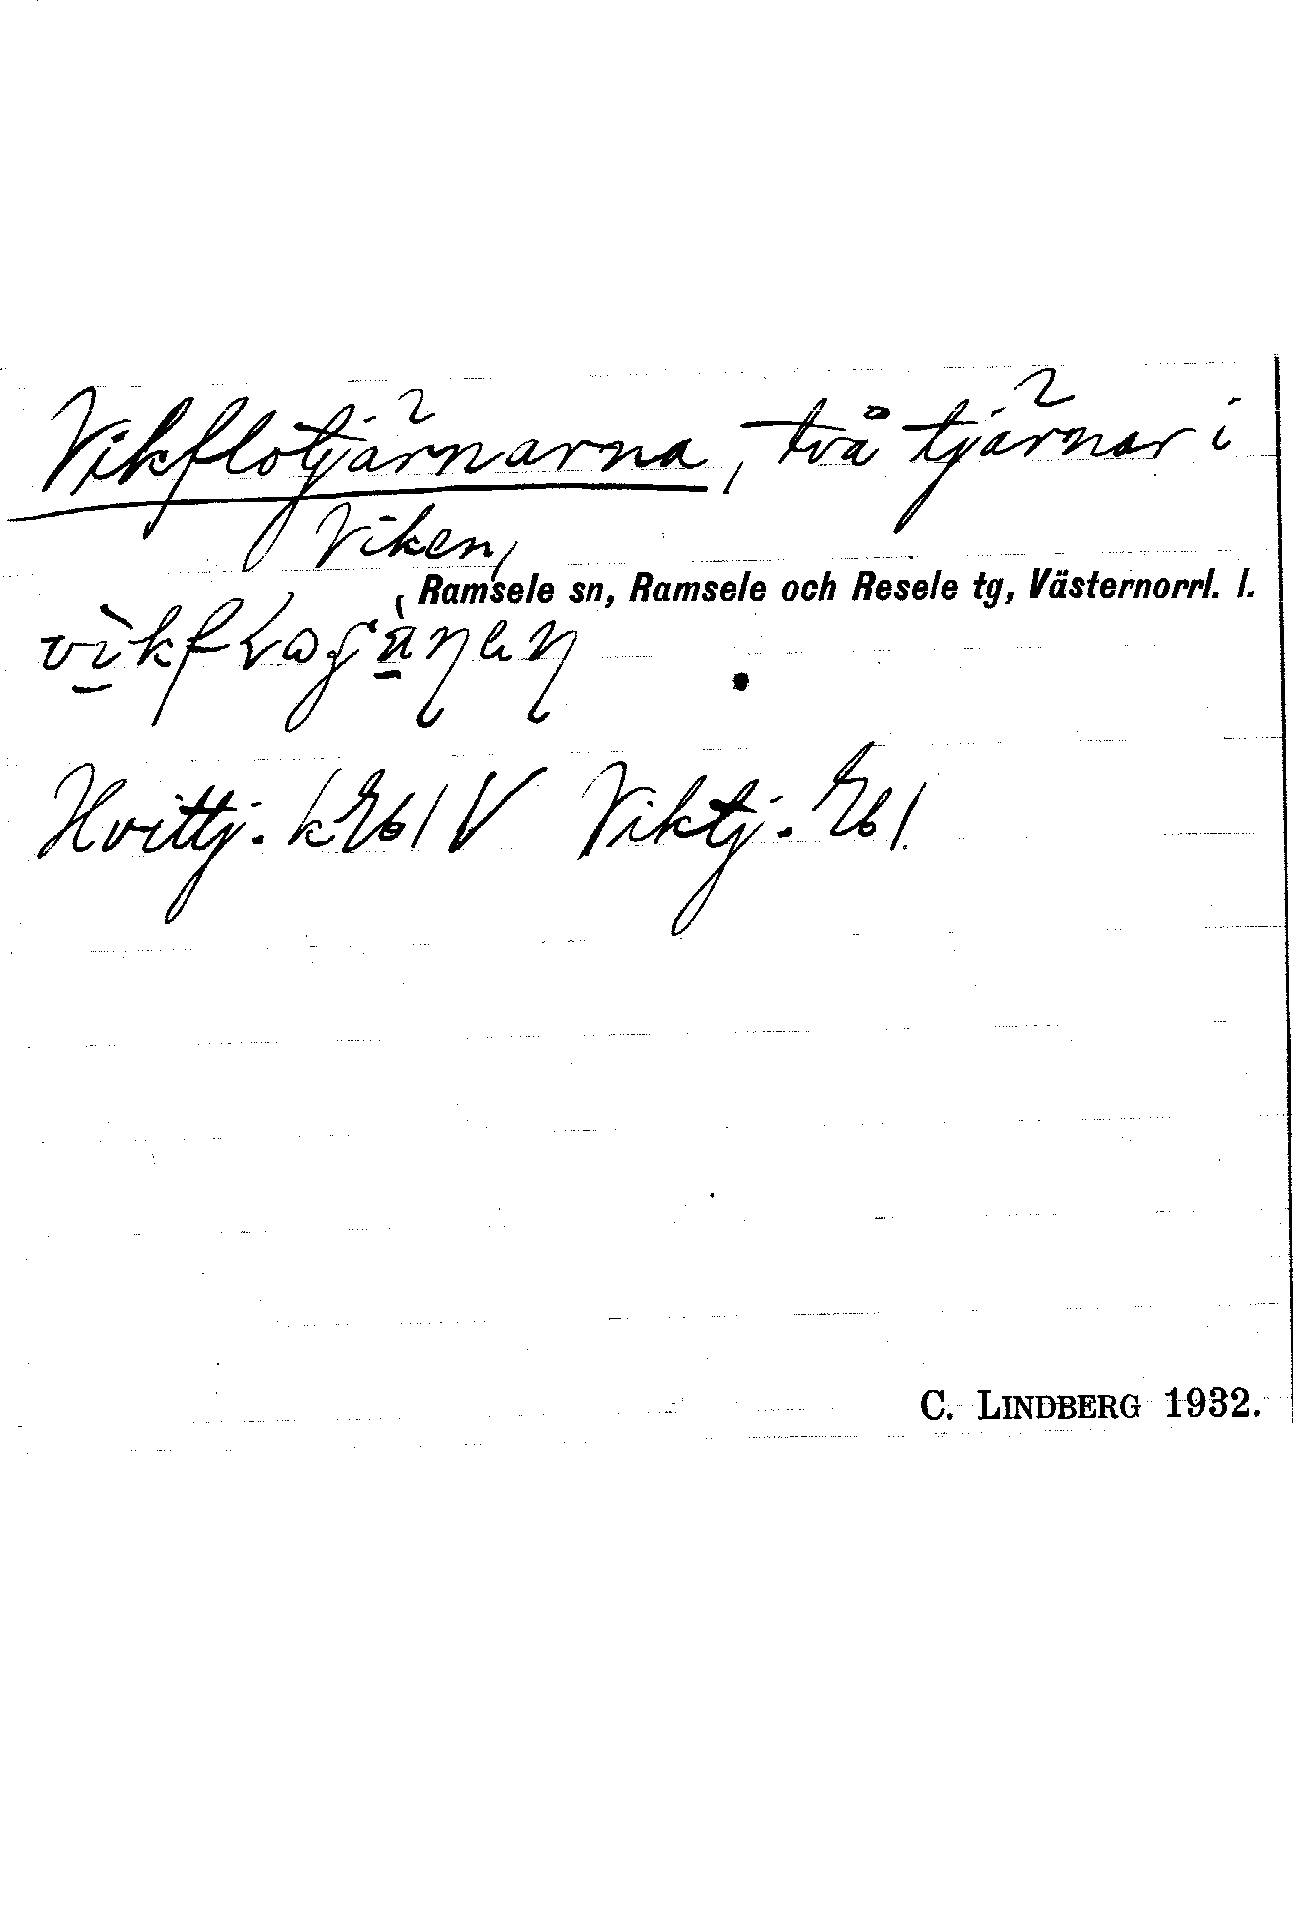 Vikflotjärnarna, två tjärnar i
Viken,
Ramsele sn, Ramsele och Resele tg, Västernorrl. l.
Hvittj. k Eb1 V Viktj. Eb1
C. LINDBERG 1932.